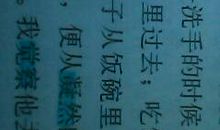 洗手的时候
里过去；吃
子从饭碗里
，便从凝然
。我觉察他